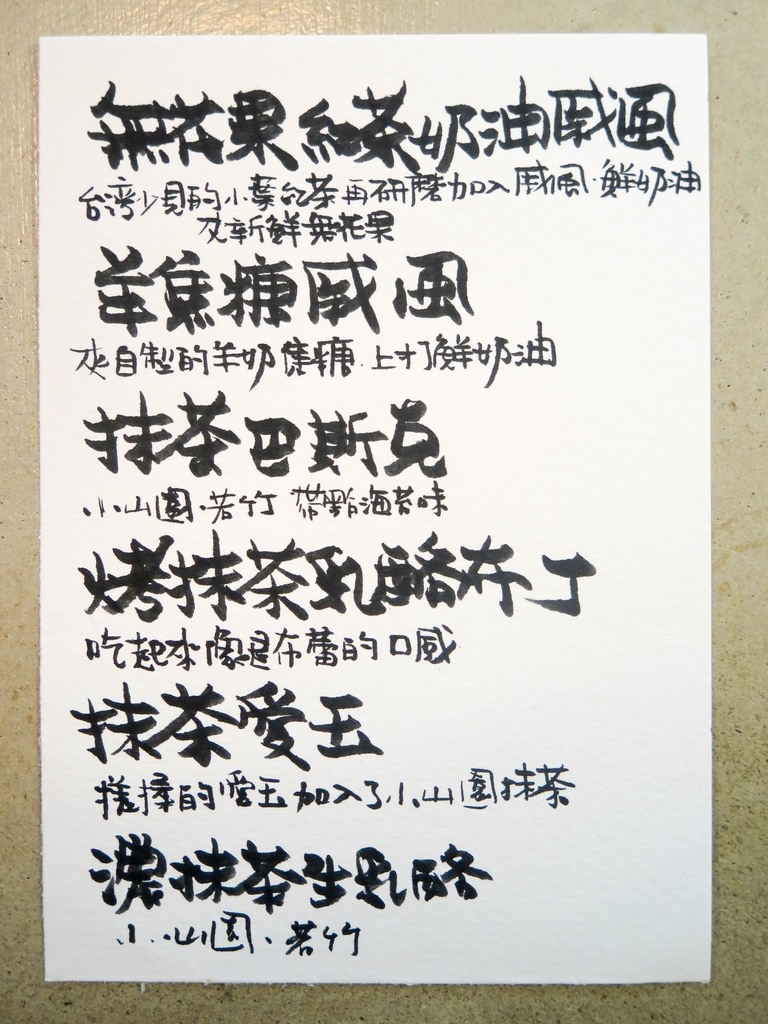 無花果紅茶奶油戚風
台灣少見的小葉紅茶再研磨加入戚風·鮮奶油
及新鮮無花果
羊焦糖戚風
夾自製的羊奶焦糖·上打鮮奶油
抹茶巴斯克
小山園·若竹 帶點海苔味
烤抹茶乳酪布丁
吃起來像是布蕾的口感
抹茶愛玉
搓揉的愛玉加入了小山園抹茶
濃抹茶生乳酪
小山園·若竹